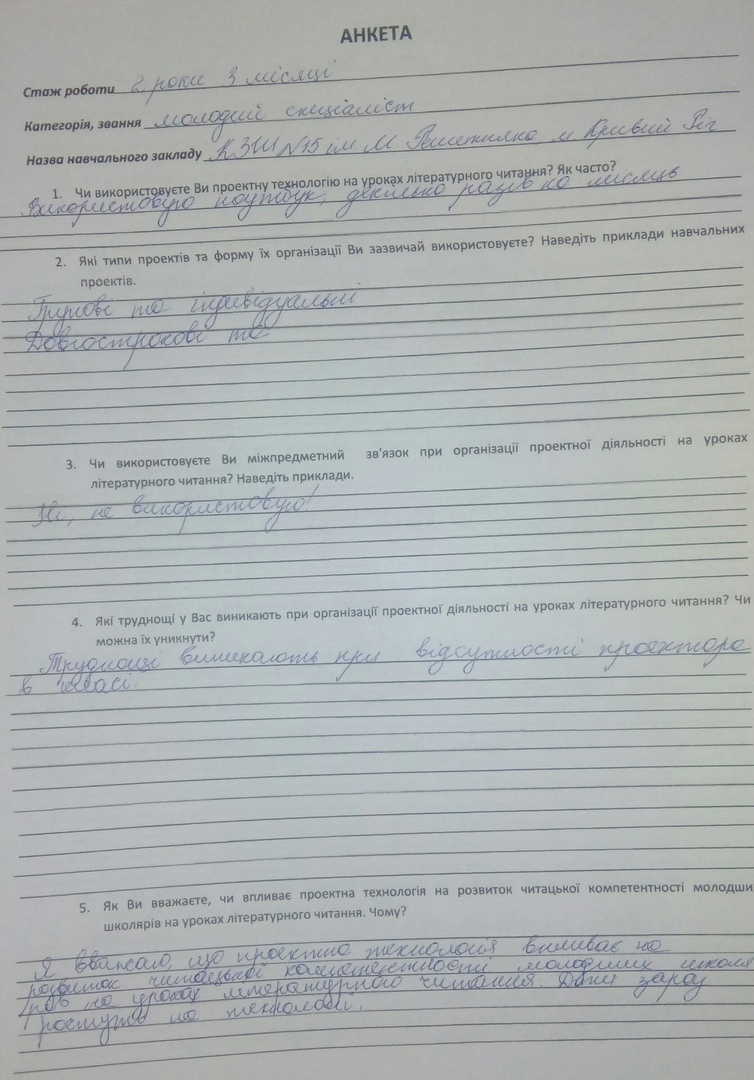 АНКЕТА
Стаж роботи 2 роки 3 місяці
Категорія, звання молодий спеціаліст
Назва навчального закладу КЗШ №15 ім М Решетняка, м Кривий Ріг
1. Чи використовуєте Ви проектну технологію на уроках літературного читання? Як часто?
Використовую ноутбук, декілька разів на місяць
2. Які типи проектів та форму їх організації Ви зазвичай використовуєте? Наведіть приклади навчальних
проектів.
Групові та індивідуальні
Довгострокові та
3. Чи використовуєте Ви міжпредметний зв'язок при організації проектної діяльності на уроках
літературного читання? Наведіть приклади.
Ні, не використовую!
4. Які труднощі у Вас виникають при організації проектної діяльності на уроках літературного читання? Чи
можна їх уникнути?
Труднощі виникають при відсутності проектора
в класі.
5. Як Ви вважаєте, чи впливає проектна технологія на розвиток читацької компетентності молодши
школярів на уроках літературного читання. Чому?
Я вважаю, що проектна технологія впливає на
розвиток читацької компетентності молодших школя
рів на уроках літературного читання. Діти зараз
ростуть на технології.